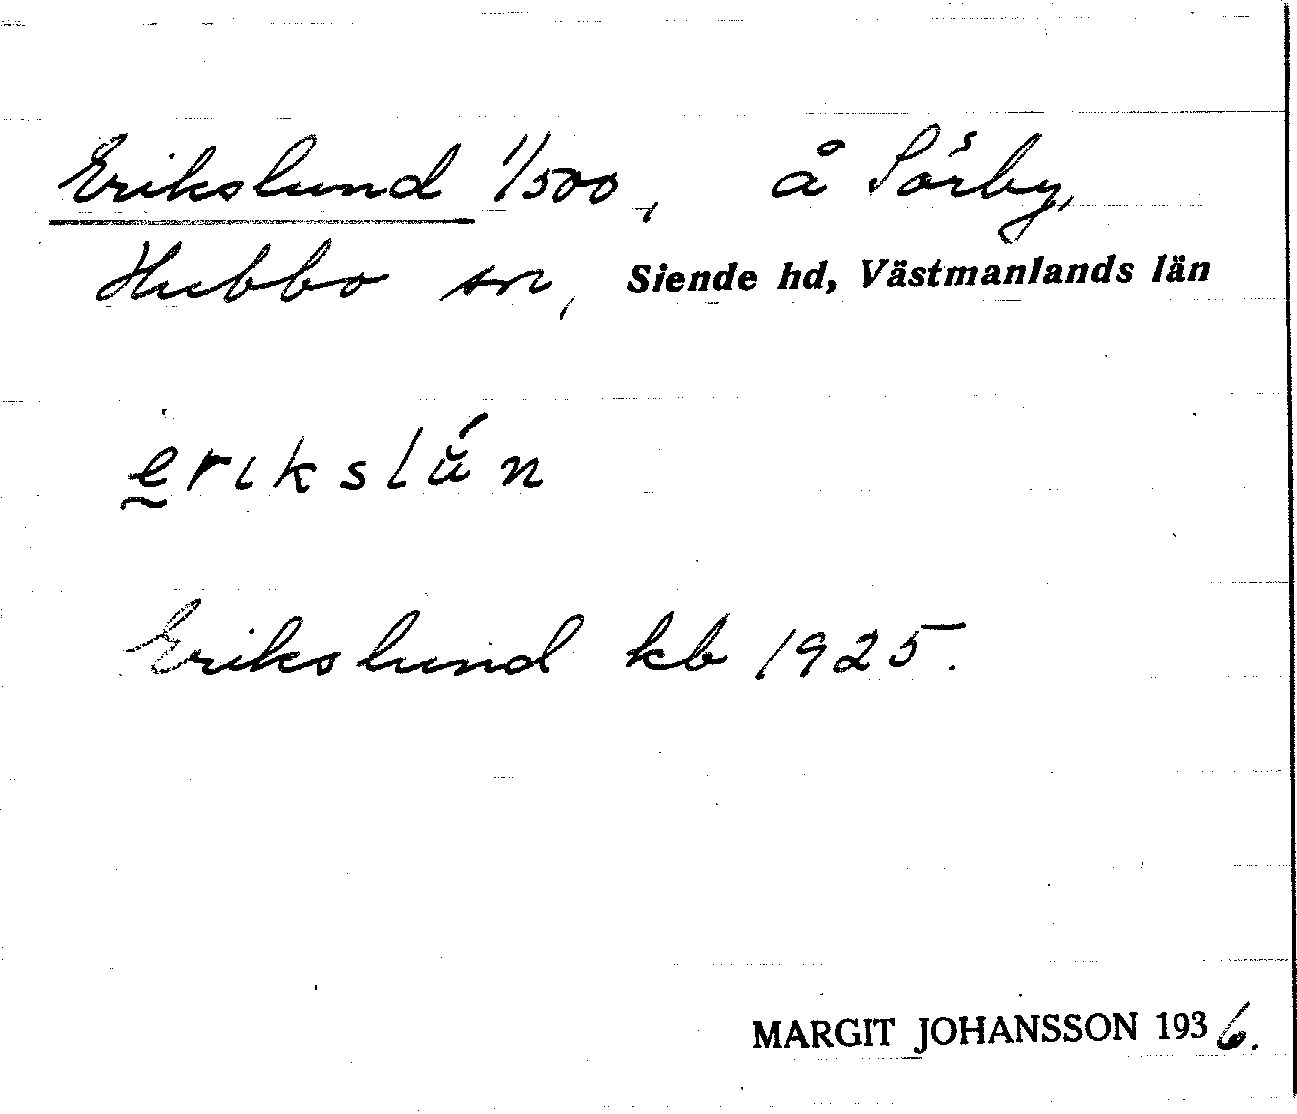 Erikslund 1/500, å Sörby,
Hubbo sn, Siende hd, Västmanlands län
ḛrikslǔ́n
Erikslund kb 1925.
MARGIT JOHANSSON 1936.